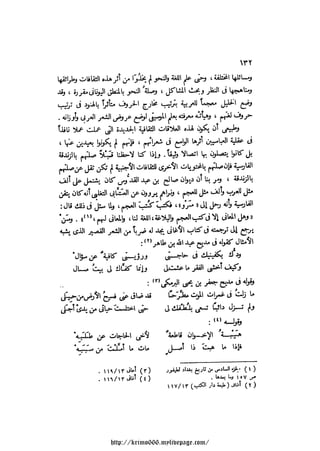 ١٣٢
وسائلها المختلفة ، وحتى علم اللغة والنحو لم يخلوا من أثر هذه الثقافات وطرائقها
ومناهجها فى النظر وبحث المشاكل ، وصلة النحو بالمنطق اليونانى مقررة ، وقد
وضع الخليل معجما للعربية بترتيب مخارج الحروف متأثراً بالهنود فى ترتيب
حروف لغتهم ، وهيأته معرفته بعلم الموسيقى لوضع عروض الشعر العربى وأوزانه .
وطبيعى أن يكون لهذه العلاقات الثقافية الجديدة التى عملت عملا نافذاً
فى عقلية العباسيين أثرها الواسع فى شعرائهم ، فإنهم لم يكونوا بعيدين عنها ،
بل كانوا يتصلون بها اتصالا وثيقاً . وإذا كنا لاحظنا قبلا صلتهم بالزندقة
الفارسية فإن صلتهم بالمحتويات الأخرى للثقافات الأجنبية لم تكن تقل عن صلتهم
بالزندقة ، ومر بنا أن ديوان صالح بن عبد القدوس كان يشتمل على ألف
مثل للعرب وألف مثل للعجم ، ونراهم يروون عن العتابى التغلبى أنه كان يتقن
الفارسية وأنه رحل إلى « مرو » ، فكتب كتب العجم ، ولما سئل فى ذلك قال :
« وهل المعانى إلا فى كتب العجم والبلاغة ، اللغة لنا ، والمعانى لهم » (١) . ومن
يرجع إلى ترجمته فى كتاب الأغانى يجد له ضرباً من الشعر القصير الذى يشبه
الأمثال كقوله فى مديح عبد الله بن طاهر (٢) :
ودك يكفينيك فى حاجتى ورؤيتى كافية عن سؤال
وكيف أخشى الفقر ما عشت لى وإنما كفاك لى بيت مال
وقوله فى مديح جعفر بن يحيى البرمكى (٣) :
ما زلت فى غمرات الموت مطرحا قد ضاق عنى فسيح الأرض من حيلى
ولم تزل دائبا تسعى بلطفك لى حتى اختلست حياتى من يدى أجلى
وقوله (٤) :
هيبة الإخوان قاطعة لأخى الحاجات عن طلبه
فإذا ما هبت ذا أمل مات ما أملت من سببه
(١) الجزء السادس من تاريخ بغداد لطيفور
ص ١٥٧ وما بعدها .
(٢) أغانى (طبع دار الكتب) ١١٧/١٣
(٣) أغانى ١١٩/١٣ .
(٤) أغانى ١١٩/١٣ .
http://krimo666.mylivepage.com/